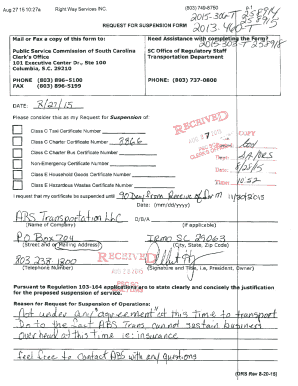 Aug 27 15 10:27a Right Way Services INC. (803) 749-8760
2015-303-T
2013-460-T
REQUEST FOR SUSPENSION FORM
Mail or Fax a copy of this form to:
Public Service Commission of South Carolina
Clerk's Office
101 Executive Center Dr., Ste 100
Columbia, S.C. 29210
PHONE (803) 896-5100
FAX (803) 896-5199
Need Assistance with completing the Form?
2015-303-T
SC Office of Regulatory Staff
Transportation Department
PHONE: (803) 737-0800
DATE: 8/21/15
Please consider this as my Request for Suspension of:
Class C Taxi Certificate Number
Class C Charter Certificate Number 8866
Class C Charter Bus Certificate Number
Non-Emergency Certificate Number
Class E Household Goods Certificate Number
Class E Hazardous Wastes Certificate Number
RECEIVED
COPY
Time: 10:52
I request that my certificate be suspended until 90 Day from Receive of form 11/30/2015
Date: (mm/dd/yyyy)
ABS Transportation LLC D/B/A
(Name of Company) (if applicable)
PO Box 704 Irmo SC 29063
(Street and/or Mailing Address) (City, State, Zip Code)
803 238 1800
(Telephone Number) (Signature and Title, i.e. President, Owner)
RECEIVED
Pursuant to Regulation 103-164 applications are to state clearly and concisely the justification
for the proposed suspension of service.
Reason for Request for Suspension of Operations:
Not under any "agreement" at this time to transport
Do to the fact ABS Trans. cannot sustain business
overhead at this time ie: insurance
feel free to contact ABS with any questions
(ORS Rev 8-20-15)